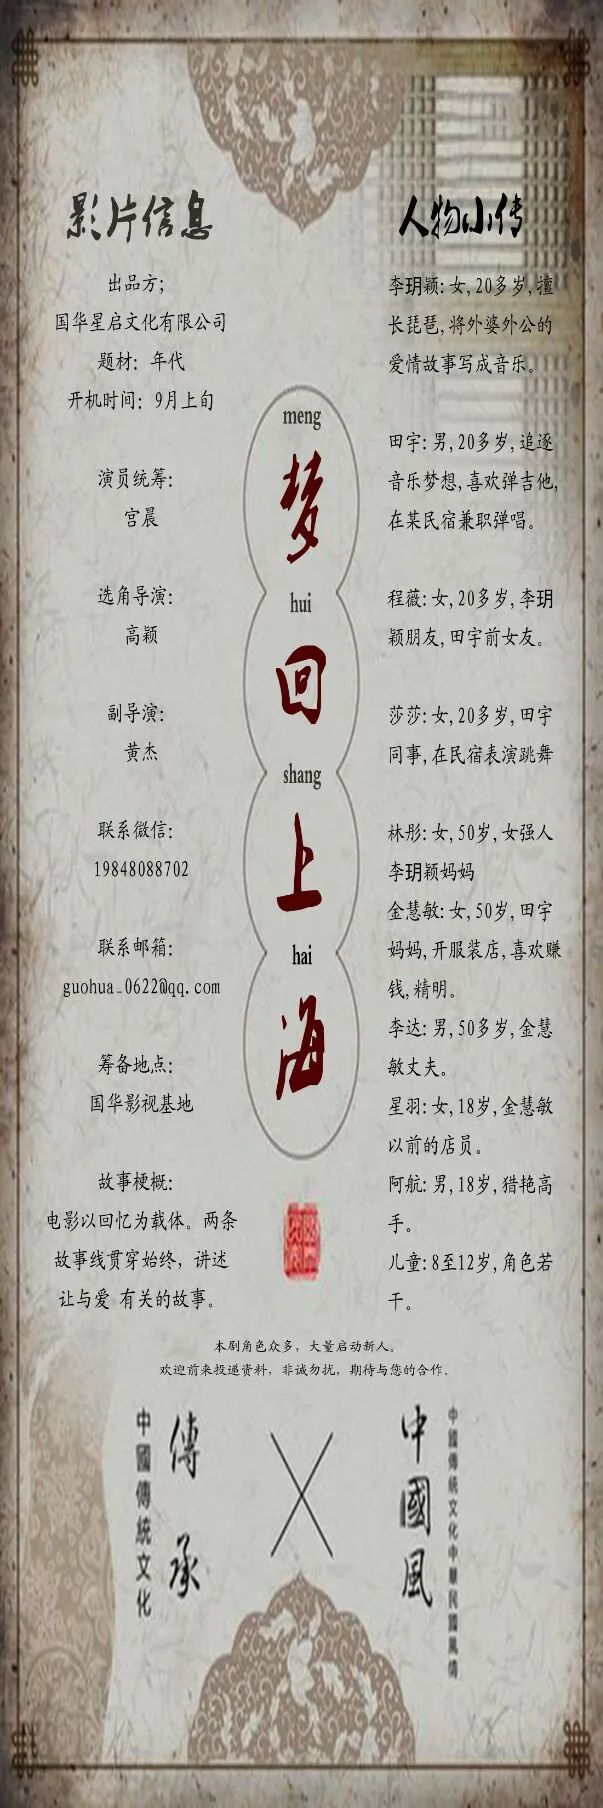 影片信息
出品方；
国华星启文化有限公司
题材：年代
开机时间：9月上旬
演员统筹：
宫晨
选角导演：
高颖
副导演：
黄杰
联系微信：
19848088702
联系邮箱：
guohua_0622@qq.com
筹备地点：
国华影视基地
故事梗概：
电影以回忆为载体。两条
故事线贯穿始终，讲述
让与爱 有关的故事。
meng
梦
hui
回
shang
上
hai
海
人物小传
李玥颖：女，20多岁，擅
长琵琶，将外婆外公的
爱情故事写成音乐。
田宇：男，20多岁，追逐
音乐梦想，喜欢弹吉他，
在某民宿兼职弹唱。
程薇：女，20多岁，李玥
颖朋友，田宇前女友。
莎莎：女，20多岁，田宇
同事，在民宿表演跳舞
林彤：女，50岁，女强人
李玥颖妈妈
金慧敏：女，50岁，田宇
妈妈，开服装店，喜欢赚
钱，精明。
李达：男，50多岁，金慧
敏丈夫。
星羽：女，18岁，金慧敏
以前的店员。
阿航：男，18岁，猎艳高
手。
儿童：8至12岁，角色若
干。
本剧角色众多，大量启动新人。
欢迎前来投递资料，非诚勿扰，期待与您的合作。
中國傳統文化
傳承
中國風
中國傳統文化中華民國風情